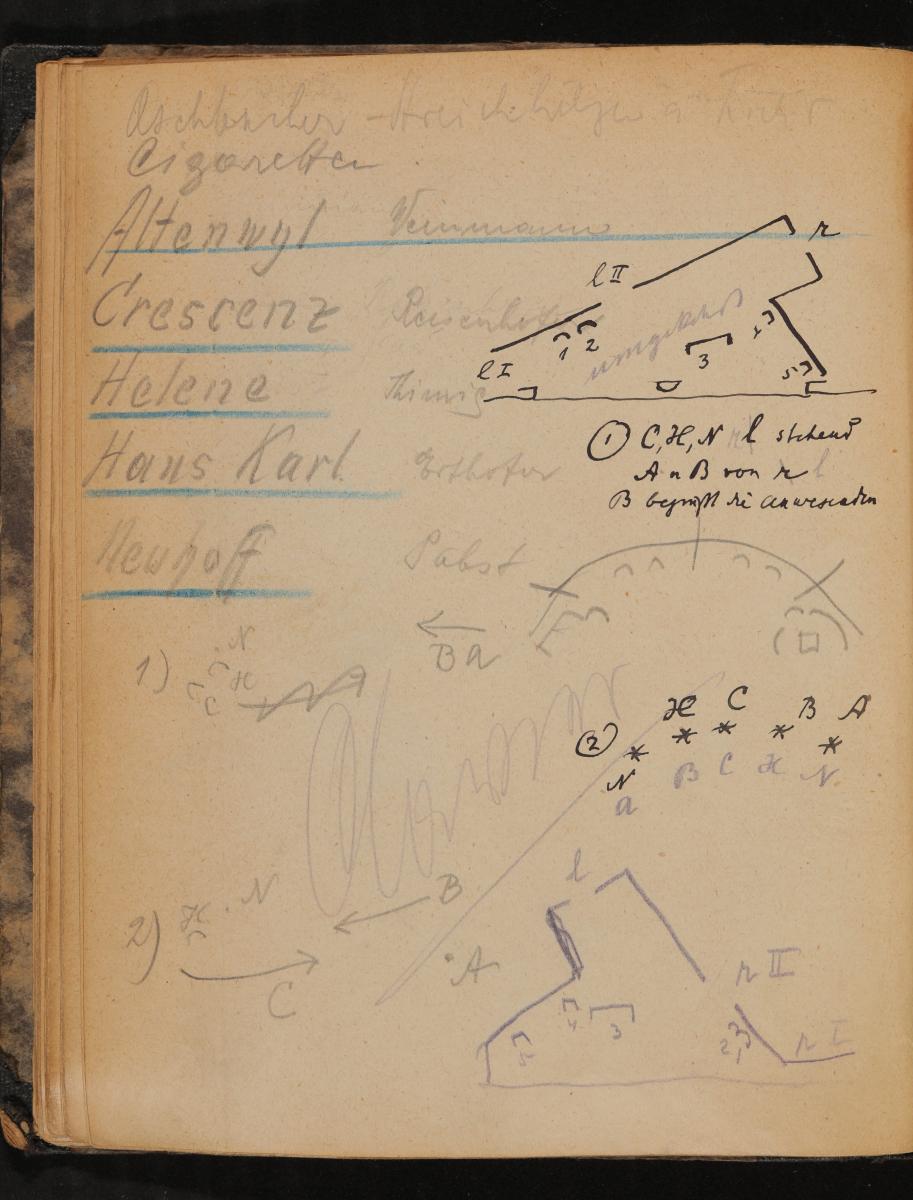 Aschbecher – Streichhölzer
Cigaretten
Altenwyl
Crescenz
Helene Thimig
Hans Karl
Neuhoff Pabst
r
l II
l I
1 2
umgekehrt
3
4
5
① C, H, N l stehend
A u B von r
B begrüßt die Anwesenden
1) N
H
C
B a
② H C B A
N
a B C H N
2) H N
B
C
A
l
r II
r I
4 3
5
2 1